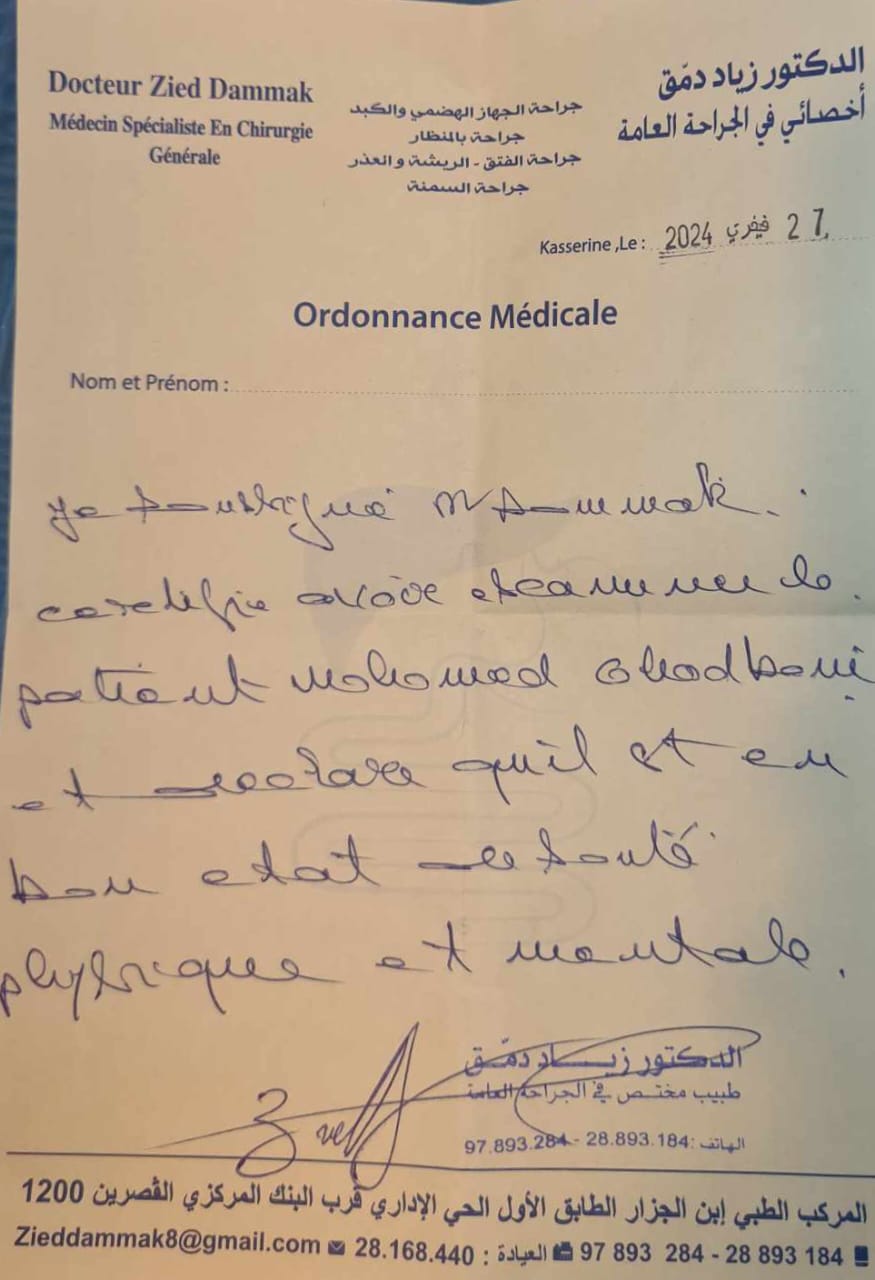 Docteur Zied Dammak
Médecin Spécialiste En Chirurgie
Générale
جراحة الجهاز الهضمي والكبد
جراحة بالمنظار
جراحة الفتق - الريشة و العذر
جراحة السمنة
الدكتور زياد دمّق
أخصائي في الجراحة العامة
Kasserine ,Le : 27 فيفري 2024
Ordonnance Médicale
Nom et Prénom :
Je soussigné Dr Dammak.
certifie avoir examiner le
patient Mohamed Ghodbani
et declare qu'il est en
bon etat de santé
physique et mentale.
الدكتور زيــاد دمّـق
طبيب مختـص في الجراحة العامة
الهاتف: 28.893.184 - 97.893.284
المركب الطبي إبن الجزار الطابق الأول الحي الإداري قرب البنك المركزي الڤصرين 1200
28 893 184 - 97 893 284 العيادة : 28.168.440 Zieddammak8@gmail.com